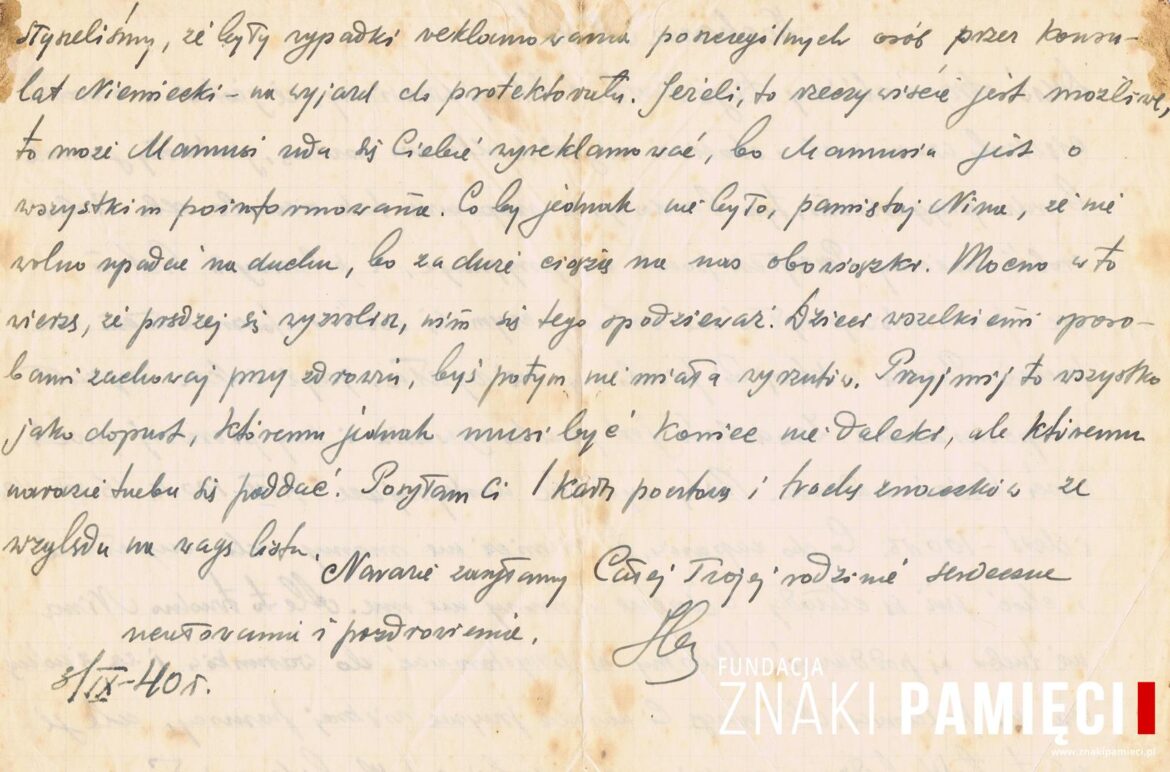 słyszeliśmy, że były wypadki reklamowania poszczególnych osób przez konsu-
lat Niemiecki – na wyjazd do protektoratu. Jeżeli, to rzeczywiście jest możliwe,
to może Mamusi uda się Ciebie wyreklamować, bo Mamusia jest o
wszystkim poinformowana. Co by jednak nie było, pamiętaj Nina, że nie
wolno upadać na duchu, bo za duże ciążą na nas obowiązki. Mocno w to
wierzę, że prędzej się wyzwolisz, nim się tego spodziewasz. Dzieci wszelkiemi sposo-
bami zachowaj przy zdrowiu, byś potym nie miała wyrzutów. Przyjmij to wszystko
jako dopust, któremu jednak musi być koniec niedaleki, ale któremu
narazie trzeba się poddać. Posyłam Ci 1 kartę pocztową i znaczków ze
względu na wagę listu.
Narazie zasyłamy Całej Twojej rodzinie serdeczne
ucałowania i pozdrowienia.
/IX-40 r.
FUNDACJA
ZNAKI PAMIĘCI
www.znakipamieci.pl